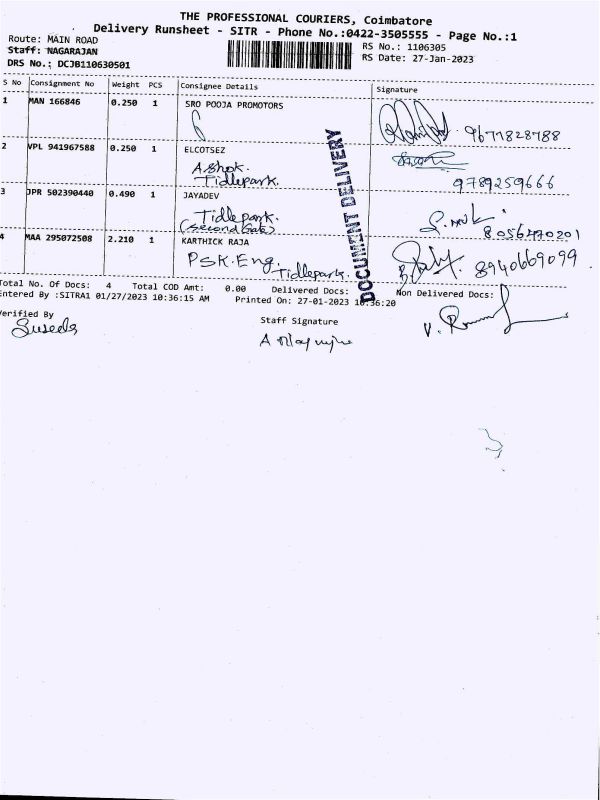 THE PROFESSIONAL COURIERS, Coimbatore
Delivery Runsheet - SITR - Phone No.:0422-3505555 - Page No.:1
Route: MAIN ROAD
Staff: NAGARAJAN
DRS No.: DCJB110630501
RS No.: 1106305
RS Date: 27-Jan-2023
S No Consignment No Weight PCS Consignee Details Signature
1 MAN 166846 0.250 1 SRO POOJA PROMOTORS
9677828788
2 VPL 941967588 0.250 1 ELCOTSEZ
A.Shok.
Tidlepark.
9789259666
3 JPR 502390440 0.490 1 JAYADEV
Tidlepark.
(Second Gate)
8056470201
4 MAA 295072508 2.210 1 KARTHICK RAJA
PSK.Eng.
Tidlepark.
8940669099
DOCUMENT DELIVERY
Total No. Of Docs: 4 Total COD Amt: 0.00 Delivered Docs: Non Delivered Docs:
Entered By :SITRA1 01/27/2023 10:36:15 AM Printed On: 27-01-2023 10:36:20
Verified By
Staff Signature